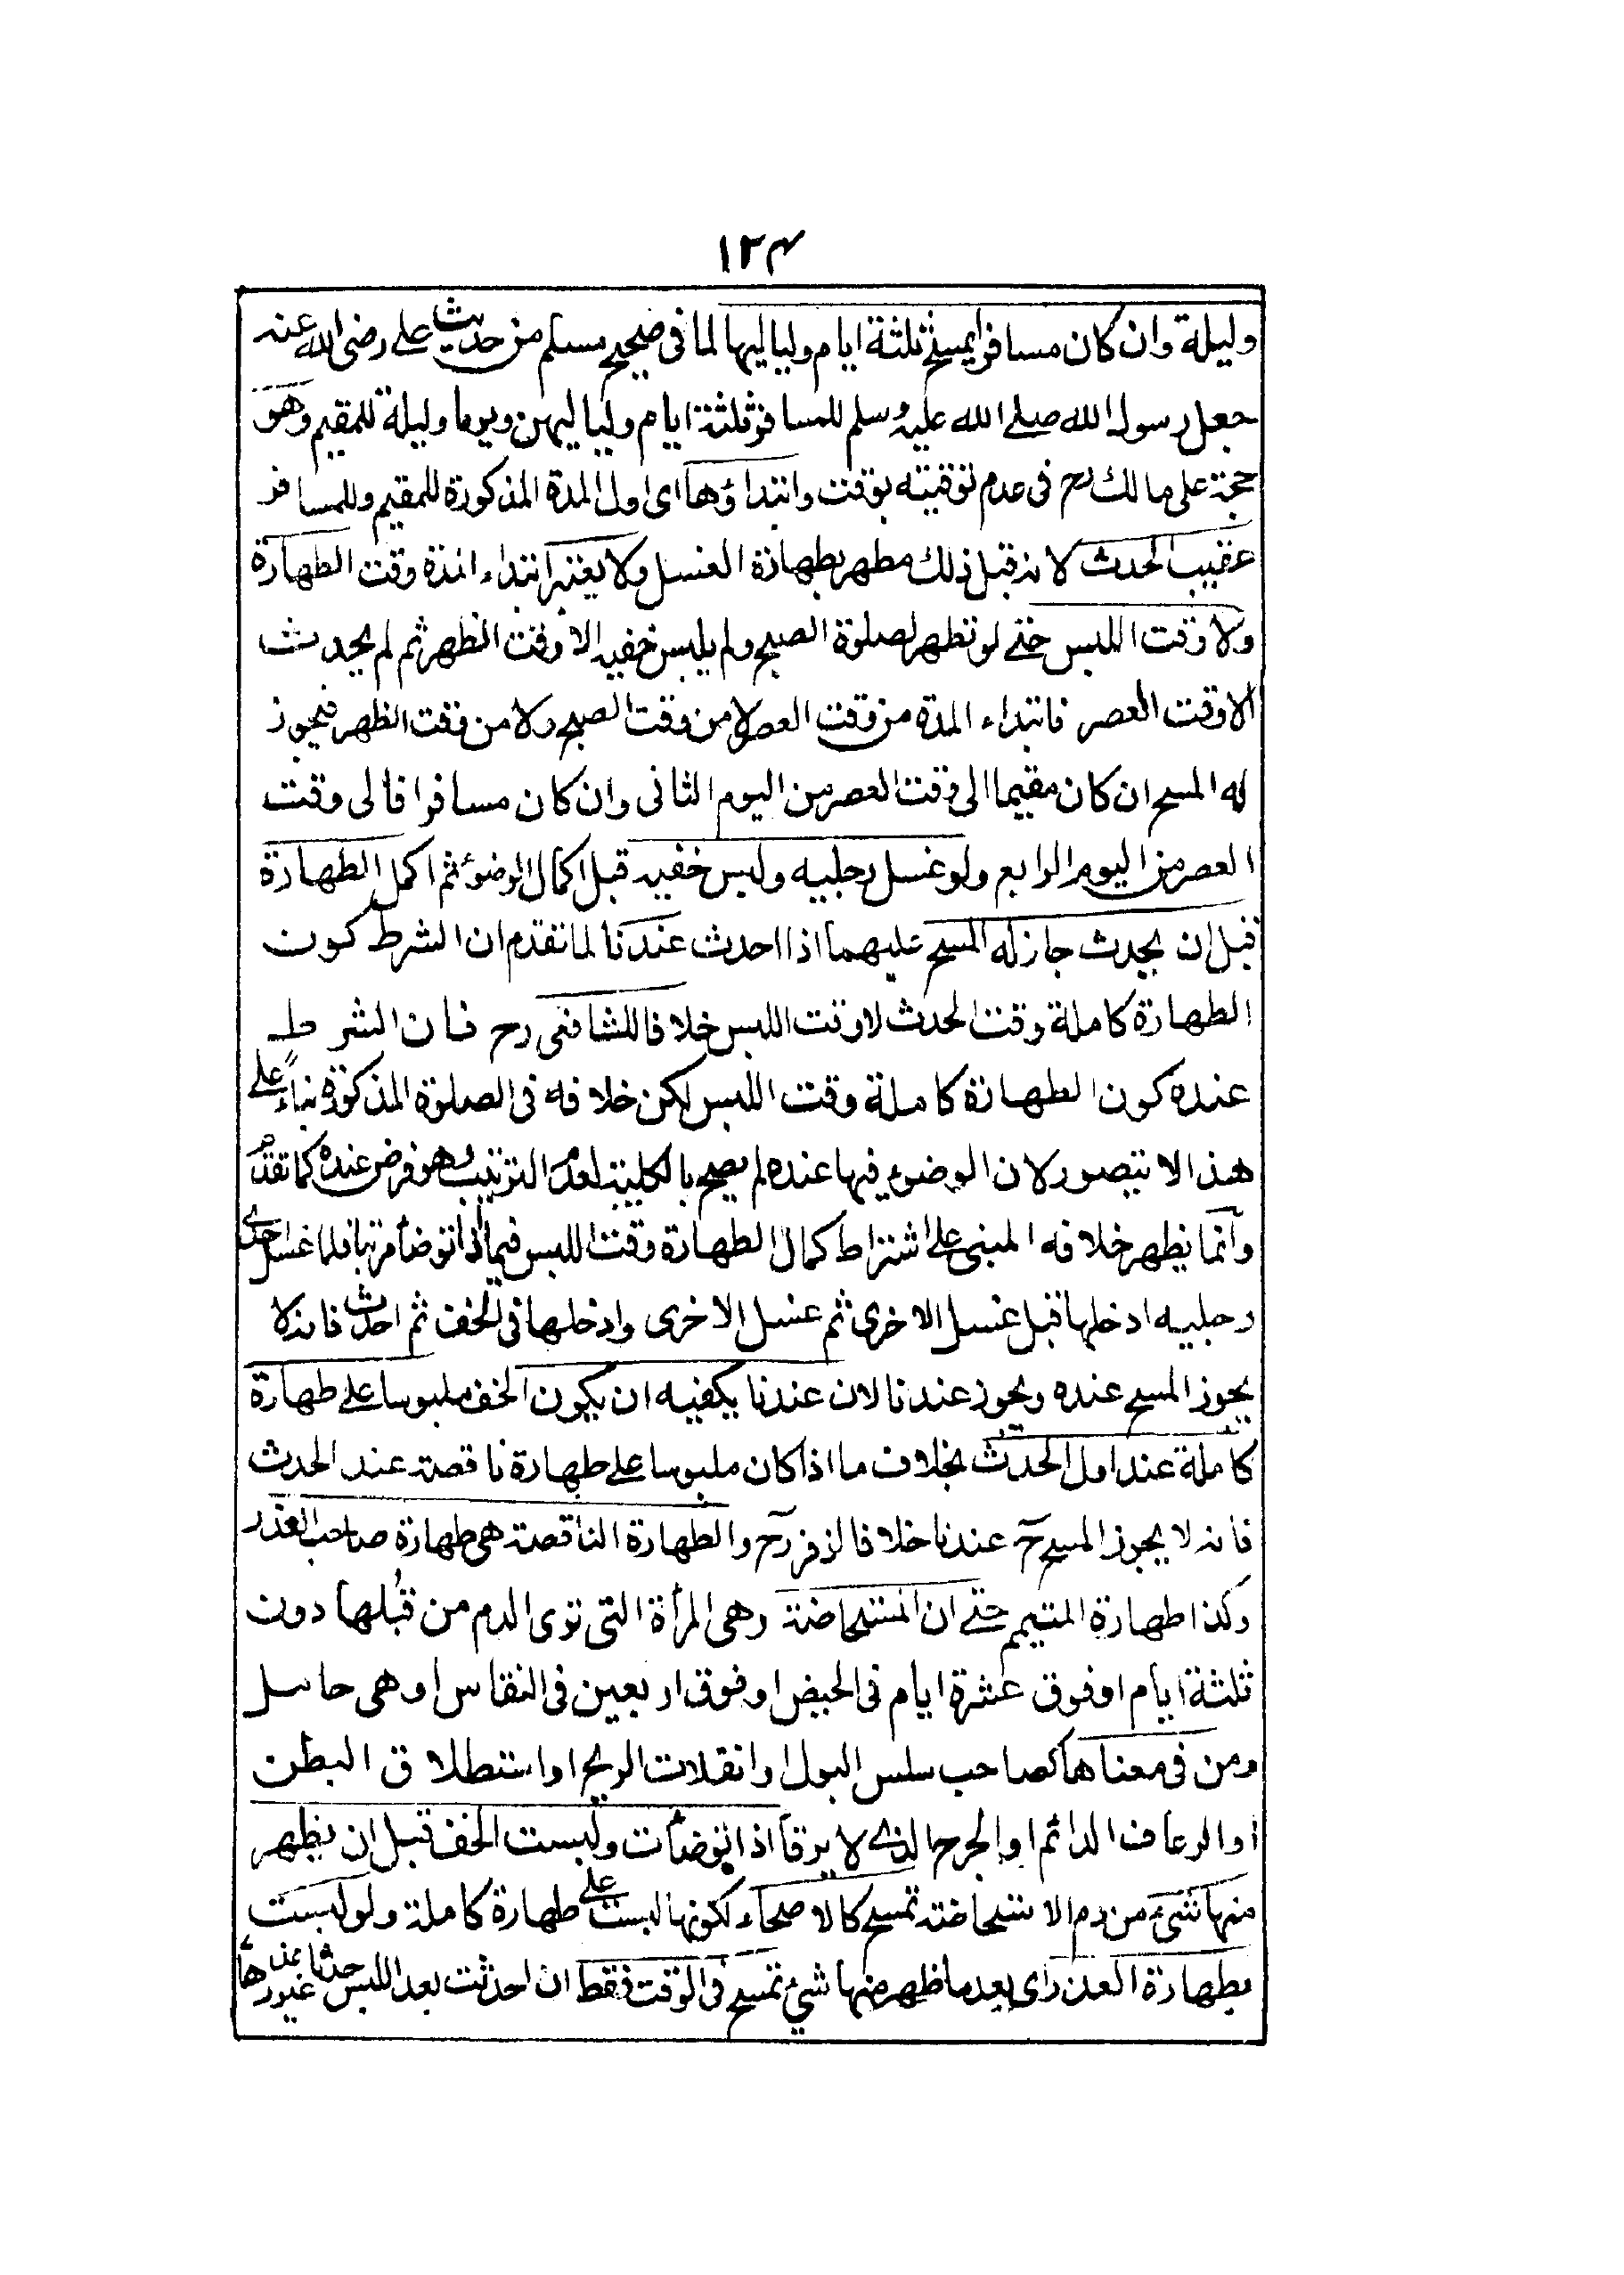 ١٢٤
وليلة وان كان مسافرا يمسح ثلثة ايام ولياليها لما فى صحيح مسلم من حديث على رضى الله عنه
جعل رسول الله صلى الله عليه وسلم للمسافر ثلثة ايام ولياليهن ويوما وليلة للمقيم وهو
حجة على مالك رح فى عدم توقيته بوقت وابتداؤها اى اول المدة المذكورة للمقيم وللمسافر
عقيب الحدث لانه قبل ذلك مطهر بطهارة الغسل ولا يعتبر ابتداء المدة وقت الطهارة
ولا وقت اللبس حتى لو تطهر لصلوة الصبح ولم يلبس خفيه الا وقت الظهر ثم لم يحدث
الا وقت العصر فابتداء المدة من وقت العصر لا من وقت الصبح ولا من وقت الظهر فيجوز
له المسح ان كان مقيما الى وقت العصر من اليوم الثانى وان كان مسافرا فالى وقت
العصر من اليوم الرابع ولو غسل رجليه ولبس خفيه قبل اكمال الوضوء ثم اكمل الطهارة
قبل ان يحدث جاز له المسح عليهما اذا احدث عندنا لما تقدم ان الشرط كون
الطهارة كاملة وقت الحدث لا وقت اللبس خلافا للشافعى رح فان الشرط
عنده كون الطهارة كاملة وقت اللبس لكن خلافه فى الصلوة المذكورة بناءً على
هذا لا يتصور لان الوضوء فيها عنده لم يصح بالكلية لعدم الترتيب وهو فرض عنده كما تقدم
وانما يظهر خلافه المبنى على اشتراط كمال الطهارة وقت اللبس فيما اذا توضأ مرتبا فلما غسل احدى
رجليه ادخلها قبل غسل الاخرى ثم غسل الاخرى وادخلها فى الخف ثم احدث فانه لا
يجوز المسح عنده ويجوز عندنا لان عندنا يكفيه ان يكون الخف ملبوسا على طهارة
كاملة عند اول الحدث بخلاف ما اذا كان ملبوسا على طهارة ناقصة عند الحدث
فانه لا يجوز المسح ح عندنا خلافا لزفر رح والطهارة الناقصة هى طهارة صاحب العذر
وكذا طهارة المتيمم حتى ان المستحاضة وهى المرأة التى ترى الدم من قُبلها دون
ثلثة ايام او فوق عشرة ايام فى الحيض او فوق اربعين فى النفاس او هى حامل
ومن فى معناها كصاحب سلس البول او انفلات الريح او استطلاق البطن
او الرعاف الدائم او الجرح الذى لا يرقأ اذا توضأت ولبست الخف قبل ان يظهر
منها شئ من دم الاستحاضة تمسح كالاصحاء لكونها لبست على طهارة كاملة ولو لبست
بطهارة العذر اى بعد ما ظهر منها شئ تمسح فى الوقت فقط ان احدثت بعد اللبس حدثا غير عذرها